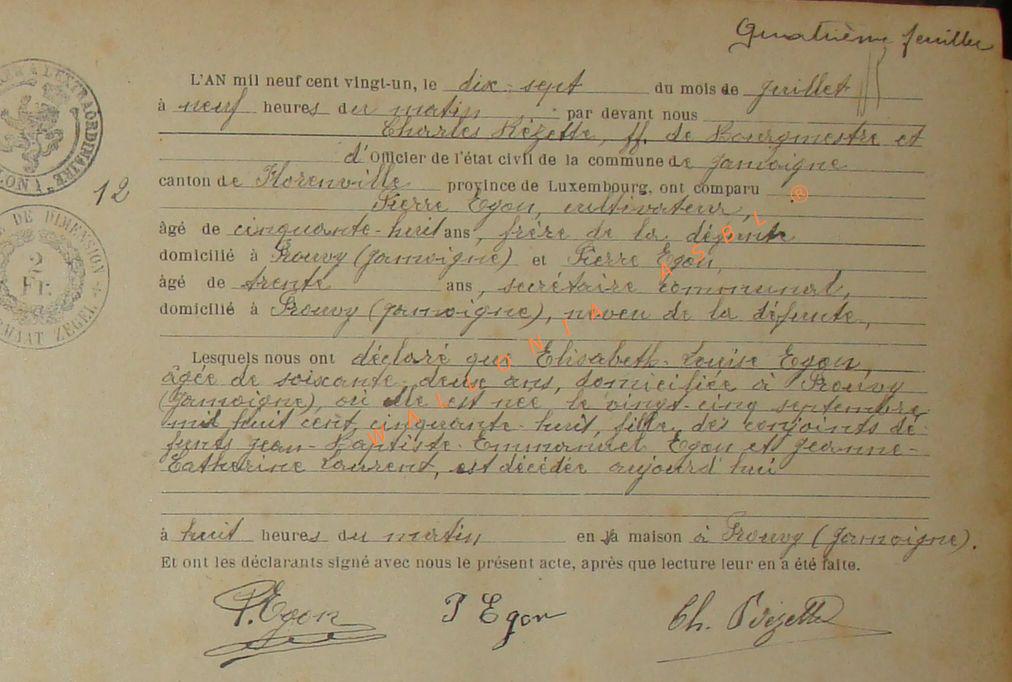 Quatrième feuillet
L'AN mil neuf cent vingt-un, le dix-sept du mois de juillet
à neuf heures du matin par devant nous
Charles Rézette, ff. de Bourgmestre et
d'Officier de l'état civil de la commune de Jamoigne
12
canton de Florenville province de Luxembourg, ont comparu
Pierre Egon, cultivateur,
âgé de cinquante-huit ans, frère de la défunte
domicilié à Prouvy (Jamoigne) et Pierre Egon,
âgé de trente ans, secrétaire communal,
domicilié à Prouvy (Jamoigne), neveu de la défunte,
Lesquels nous ont déclaré que Elisabeth-Louise Egon,
âgée de soixante-deux ans, domiciliée à Prouvy
(Jamoigne), où elle est née le vingt-cinq septembre
mil huit cent cinquante-huit, fille des conjoints dé-
funts Jean-Baptiste-Emmanuel Egon et Jeanne-
Catherine Laurent, est décédée aujourd'hui
à huit heures du matin en sa maison à Prouvy (Jamoigne).
Et ont les déclarants signé avec nous le présent acte, après que lecture leur en a été faite.
P. Egon P Egon Ch. Rézette
DE DIMENSION
2
Fr.
ZEGEL
WALLONIA ASBL ®